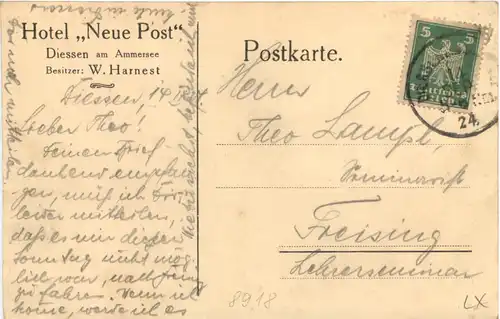 Hotel „Neue Post"
Diessen am Ammersee
Besitzer: W. Harnest
Postkarte.
5
Deutsches
Reich
24.
Diessen, 14.
Lieber Theo!
Deinen Brief
dankend empfan-
gen, muß ich Dir
leider mitteilen,
daß es mir diesen
Sonntag nicht mög-
lich war, nach
zu fahren. Wenn ich
komme, werde ich es
Dir noch mitteilen.
Herrn
Theo Lampl,
Seminarist
Freising
Lehrerseminar
8918
LX